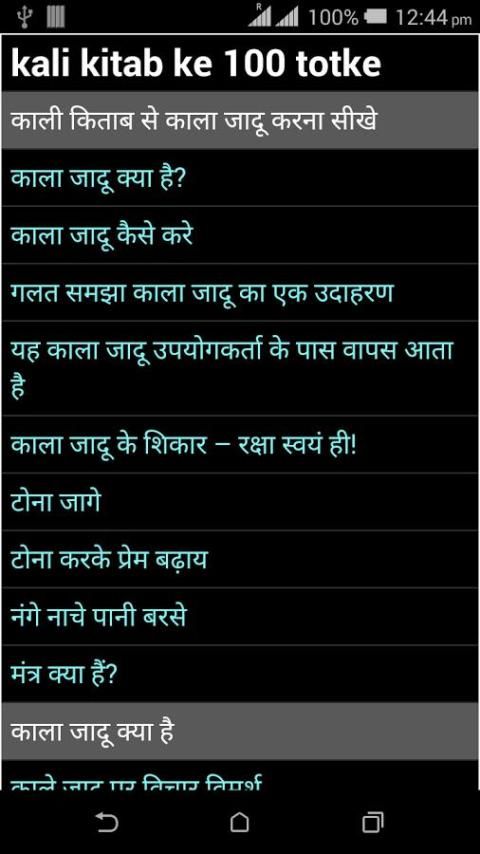 R 100% 12:44 pm
kali kitab ke 100 totke
काली किताब से काला जादू करना सीखे
काला जादू क्या है?
काला जादू कैसे करे
गलत समझा काला जादू का एक उदाहरण
यह काला जादू उपयोगकर्ता के पास वापस आता
है
काला जादू के शिकार – रक्षा स्वयं ही!
टोना जागे
टोना करके प्रेम बढ़ाय
नंगे नाचे पानी बरसे
मंत्र क्या हैं?
काला जादू क्या है
काले जादू पर विचार विमर्श